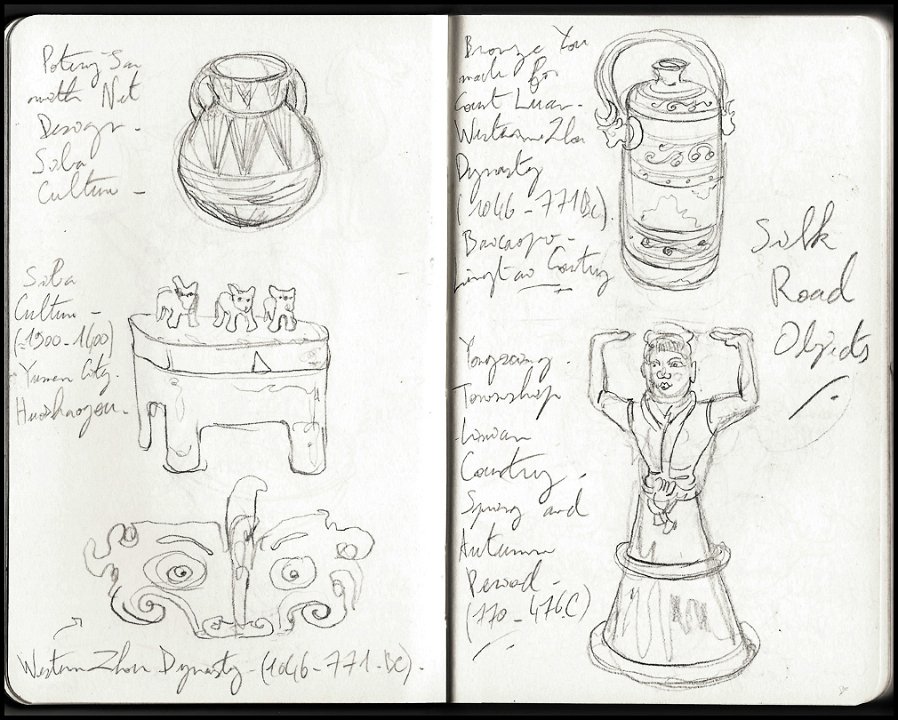 Potery Jar
with Net
Design -
Siba
Culture -
Siba
Culture -
(-1900-1600)
Yumen City.
Huoshaogou -
Western Zhou Dynasty - (1046-771-BC) -
Bronze You
made for
Count Luan -
Western Zhou
Dynasty
(1046-771BC).
County
Silk
Road
Objects
Township
County -
Spring and
Autumn
Period -
(770-476C)